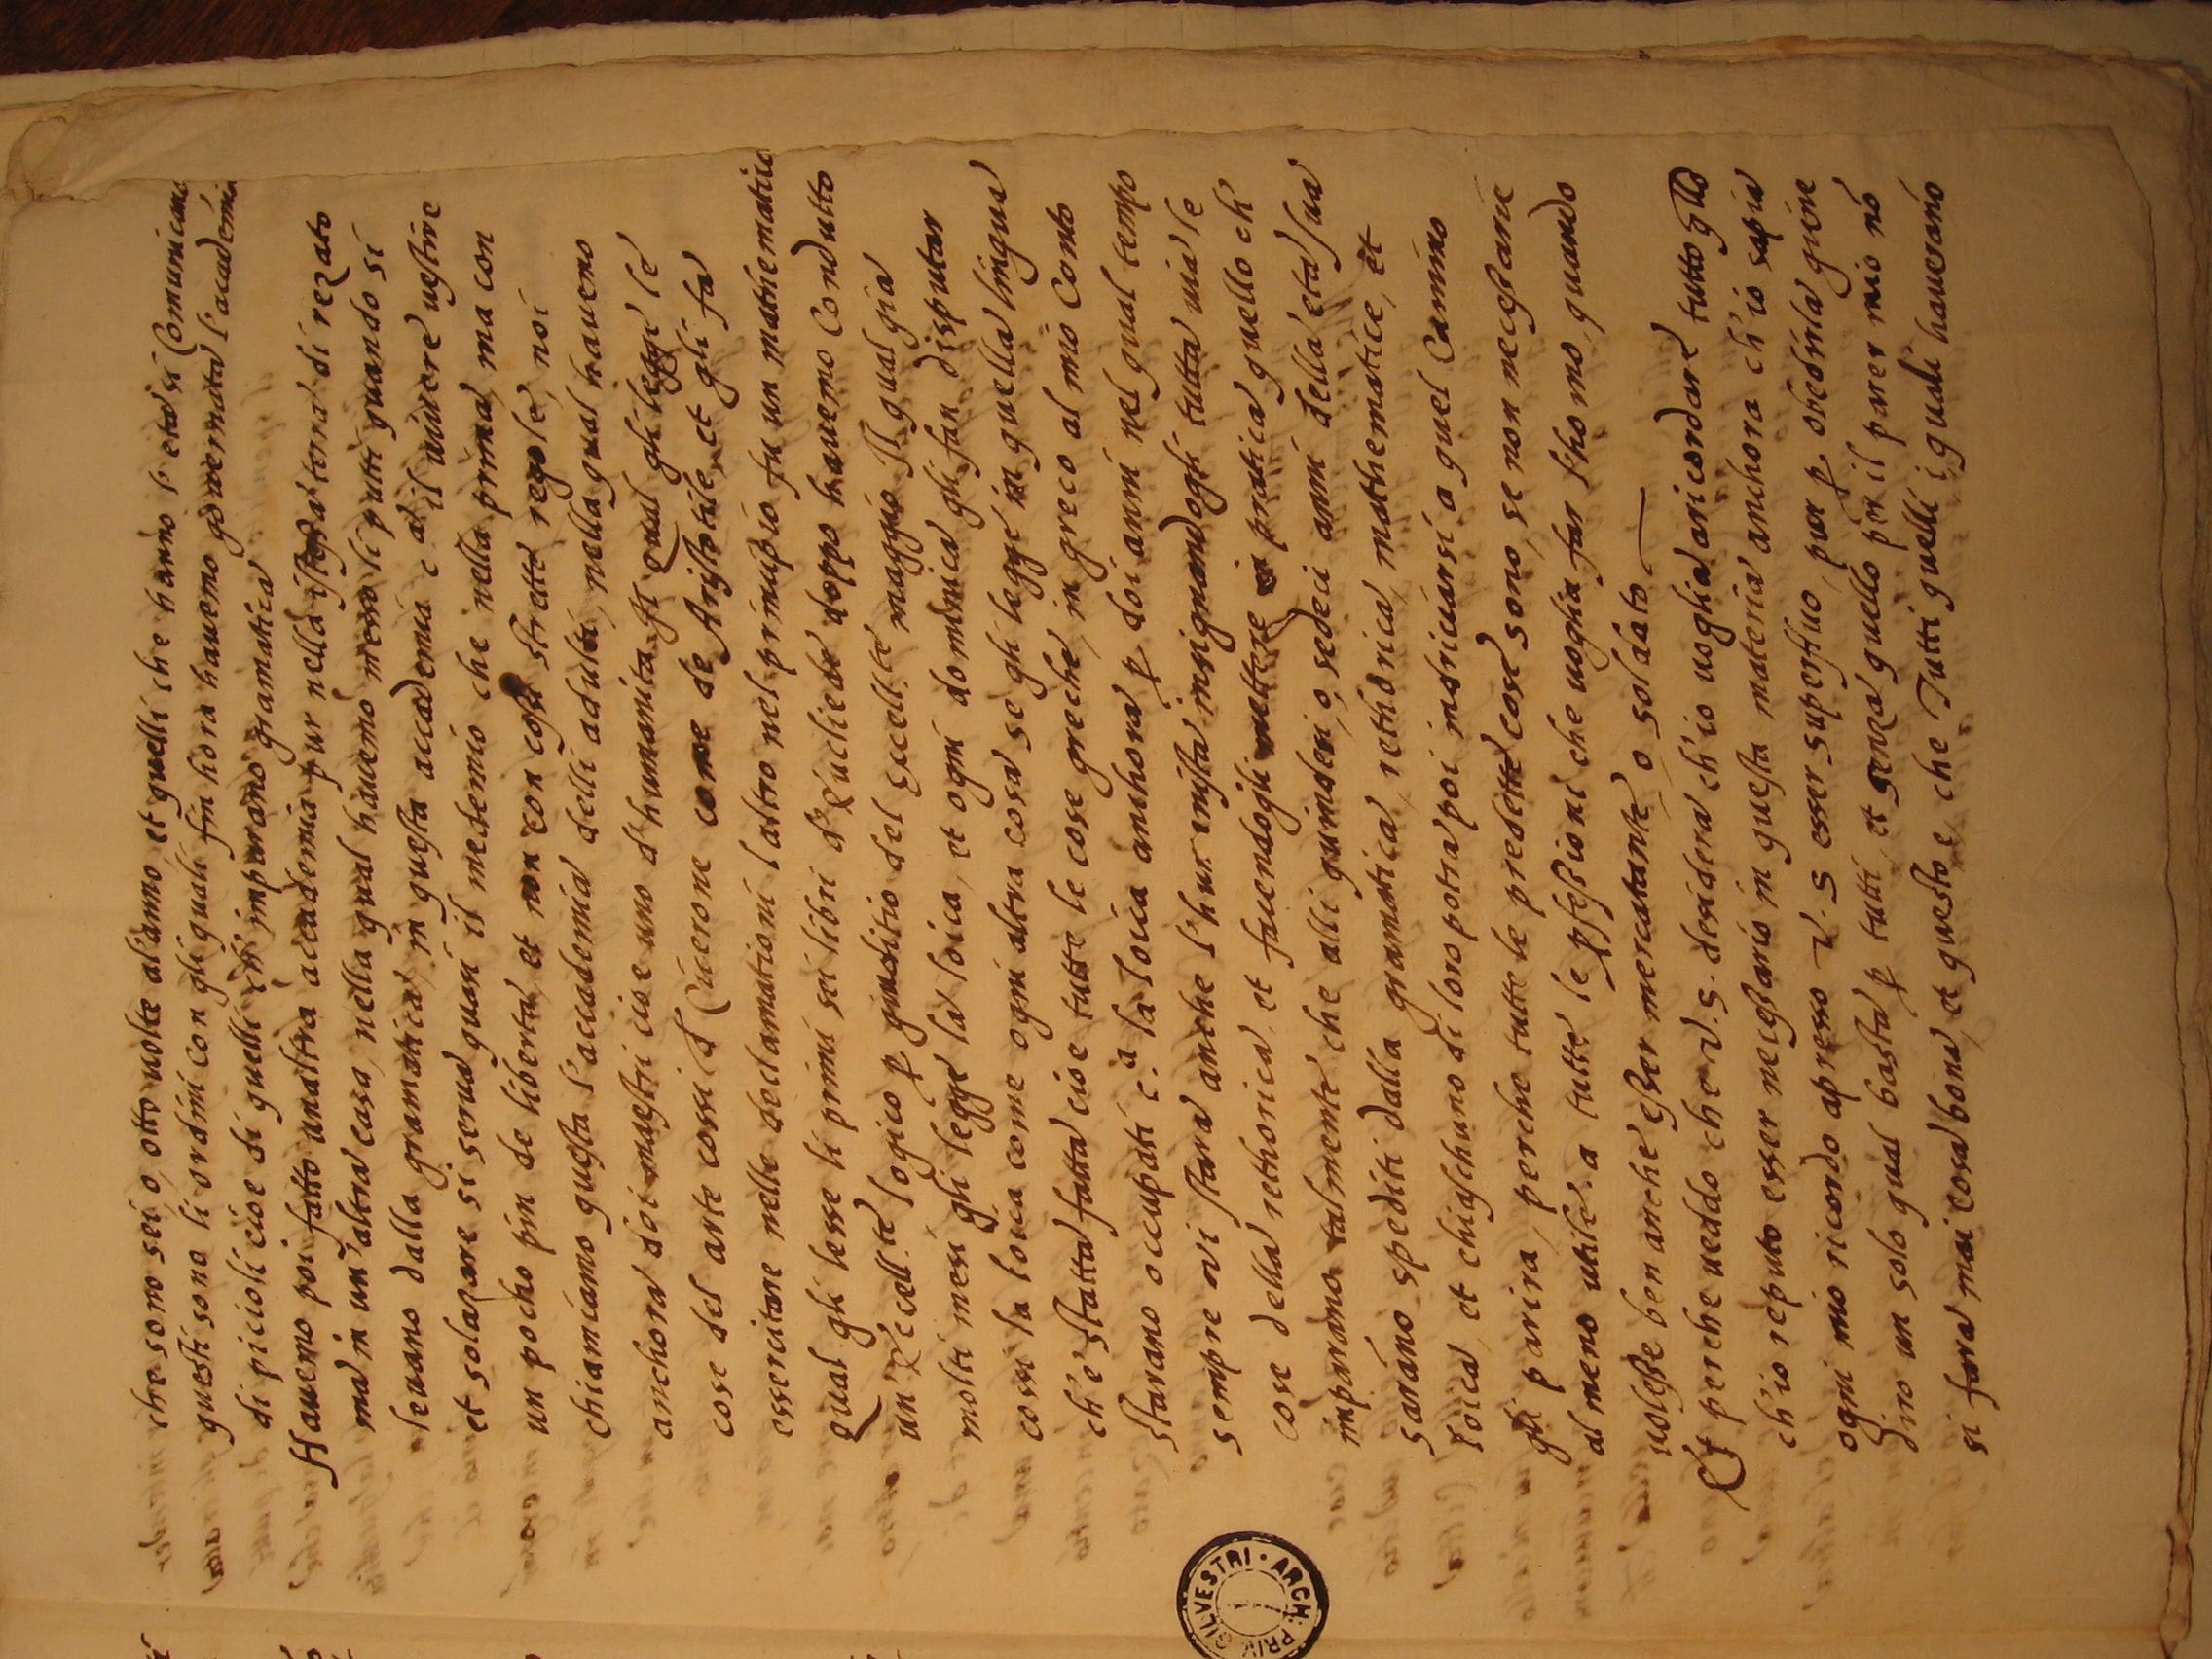 che sono sei, o, otto uolte al'anno, et quelli che hanno l'eta si Comunicano
questi sono li ordini con gli quali fin hora hauemo gouernata l'accademia
di picioli cioe di quelli ch'imparano gramatica
Hauemo poi fatto un'altra accademia pur nella istessa terra di rezato
ma in un'altra casa, nella qual hauemo messo li putti quando si
leuano dalla gramatica, in questa accademia c.a il uiuere uestire
et solazare si serua quasi il medemio che nella prima, ma con
un pocho piu de liberta, et non con cosi strette regole, noi
chiamiamo questa l'accademia delli adulti, nella qual hauemo
anchora doi maestri cioe uno d'humanita Il qual gli legge le
cose del arte cossi d Cicerone come de Aristotile, et gli fa
essercitare nelle declamationi l'altro nel principio fu un mathematico
qual gli lesse li primi sei libri d'Euclide doppo hauemo Condutto
un Eccell.te logico p giuditio del Eccell.te maggio Il qual gia
molti mesi gli legge la loica, et ogni domenica gli fan disputar
cossi la loica come ogni altra cosa se gli legge in quella lingua
ch'e statta fatta cioe tutte le cose greche, in greco al mio Conto
starano occupati c.a la loica anchora p doi anni nel qual tempo
sempre vi stara anche l'humanista insignandogli tutta uia le
cose della rethorica, et facendogli mettere in pratica quello ch'
imparano talmente che alli quindeci, o, sedeci anni della eta sua
sarano spediti dalla gramatica, rethorica, mathematice, et
loica, et chiaschuno di loro potra poi indricciarsi a quel Camino
gli parira, perche tutte le predette cose sono, se non necessarie
al meno utile a tutte le pfessioni che uoglia far l'homo, quando
uolesse ben anche esser mercatante, o soldato
Et perche ueddo che V.S. desidera ch'io uoglia aricordare tutto qllo
ch'io reputo esser necessario in questa materia anchora ch'io sapia
ogni mio ricordo apresso V.S esser superfluo, pur p obedirla gione
diro un solo qual basta p tutti, et senza quello per il parer mio nō
si fara mai cosa bona, et questo e, che Tutti quelli i quali hauerano
SILVESTRI · ARCH. PRIV.